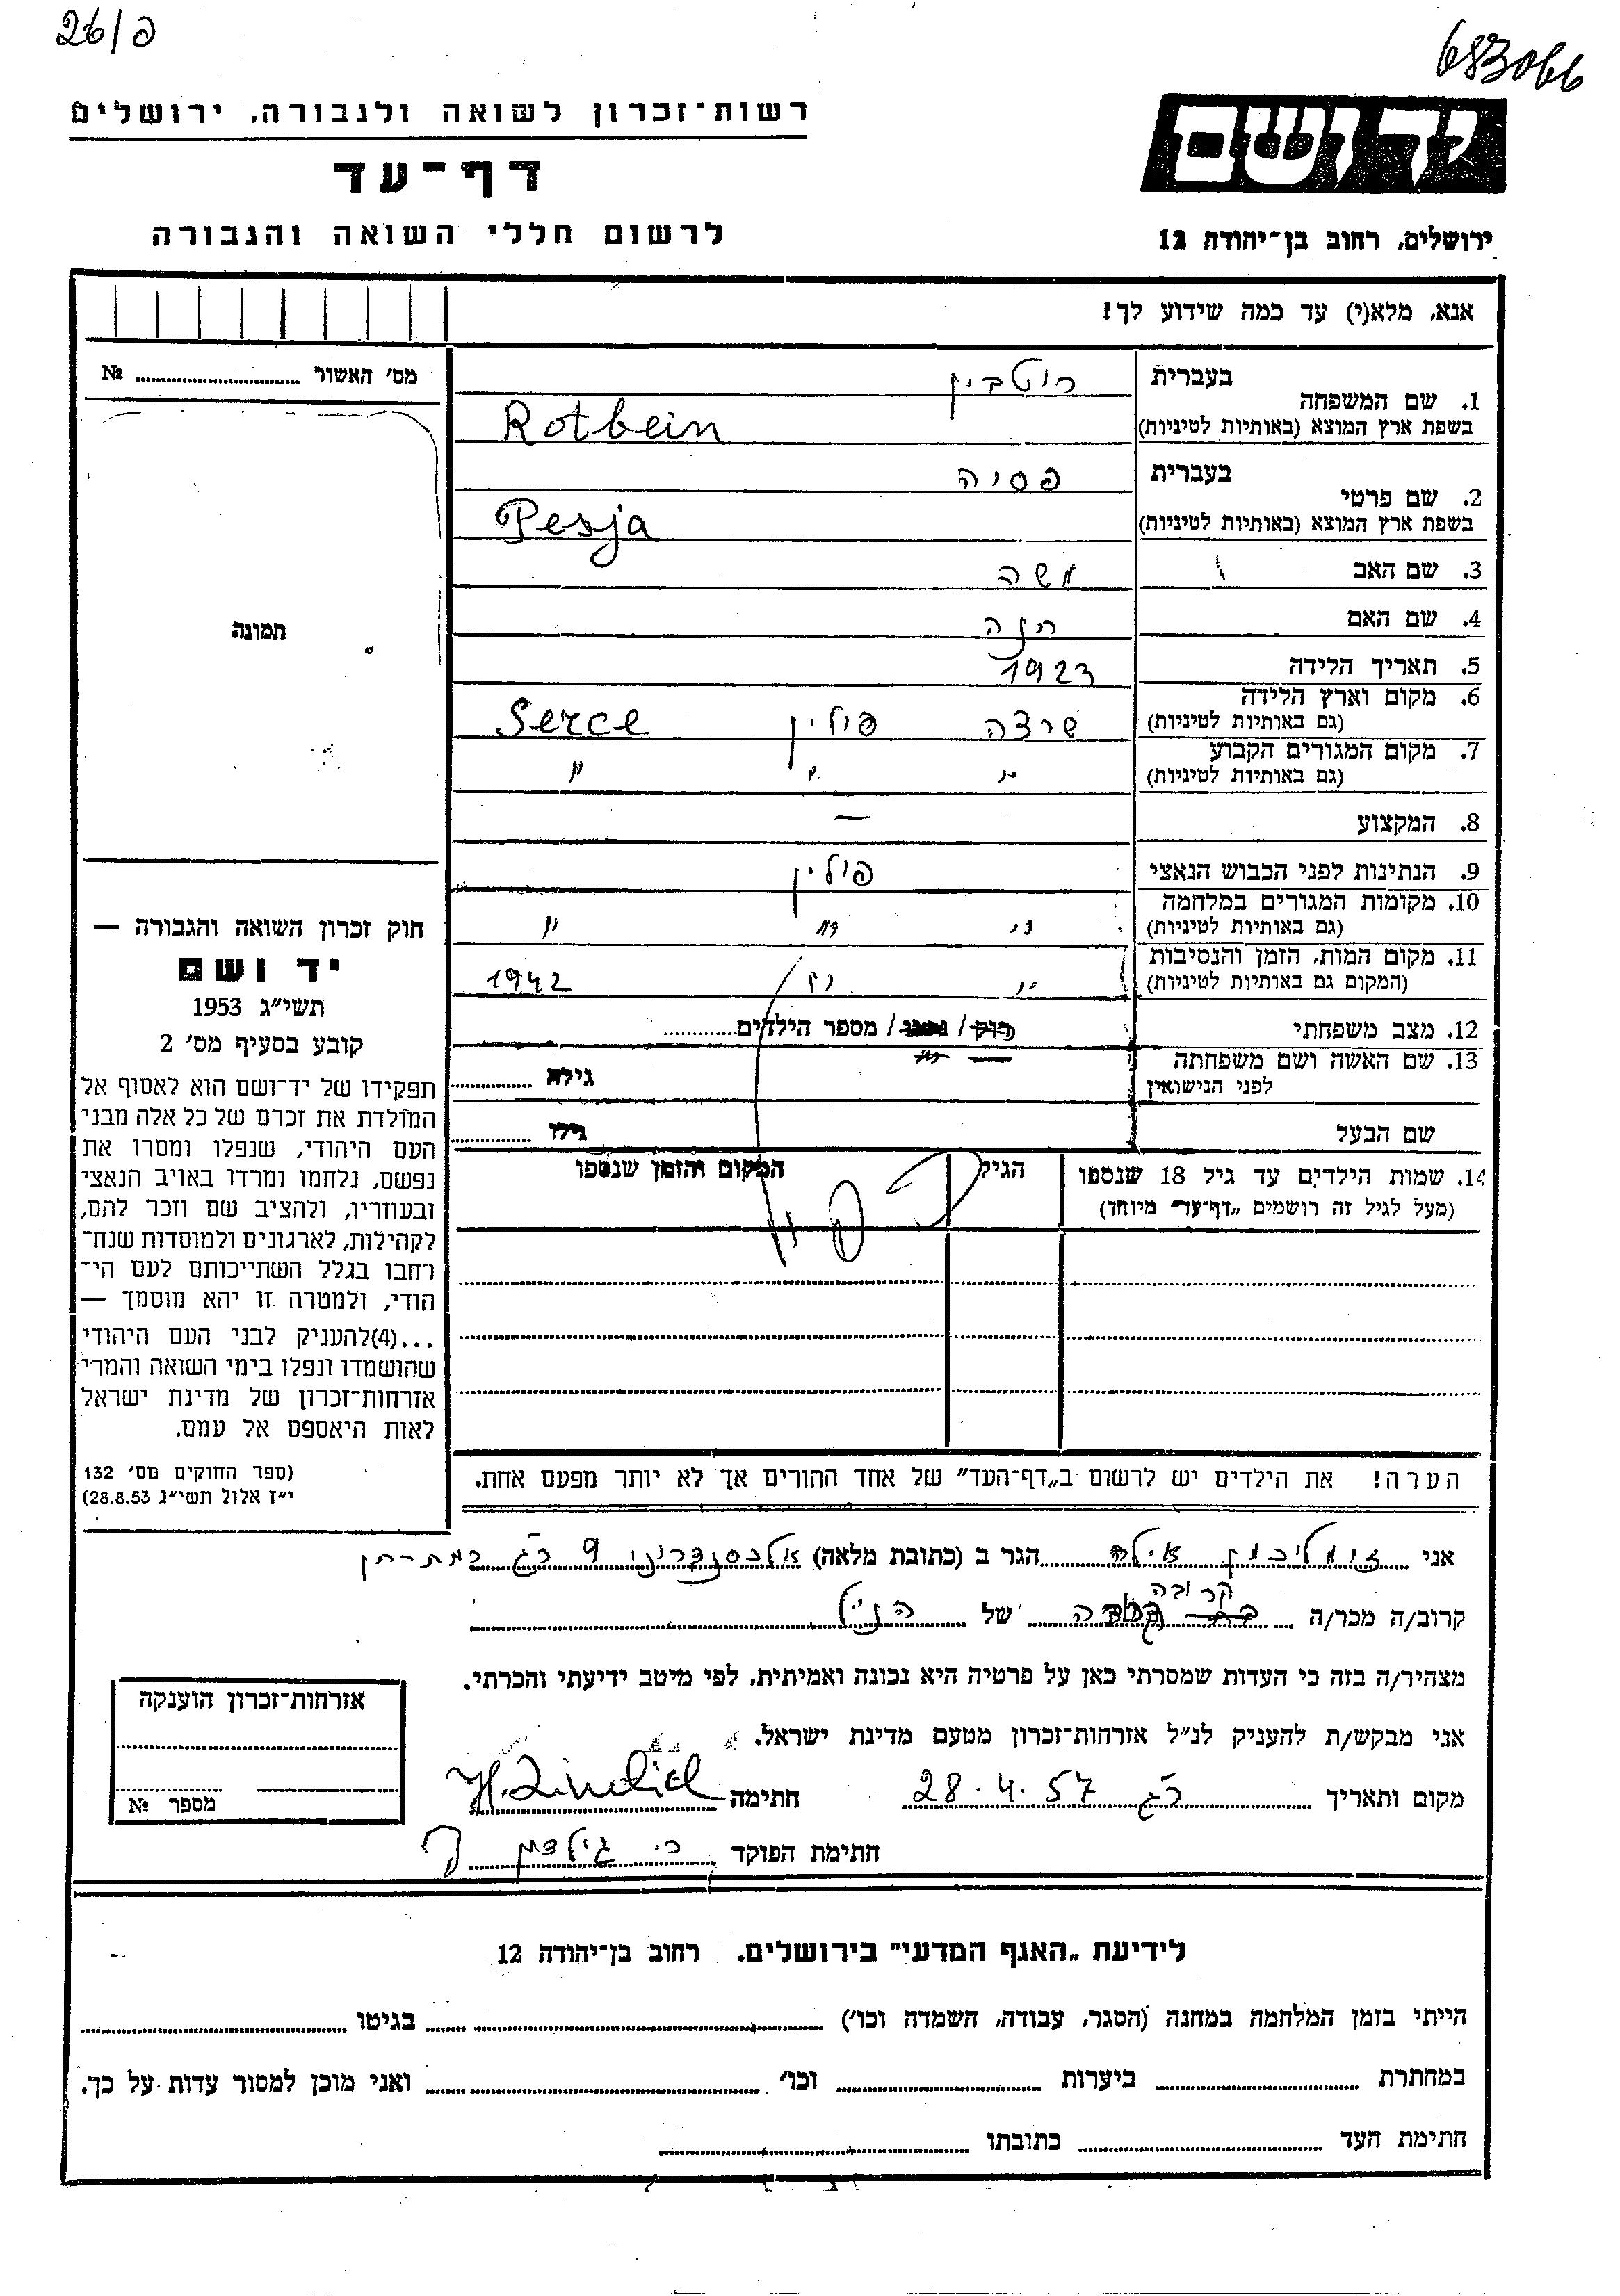 26/פ
683066
רשות־זכרון לשואה ולגבורה, ירושלים
דף־עד
לרשום חללי השואה והגבורה
יד ושם
ירושלים, רחוב בן־יהודה 12
אנא, מלא(י) עד כמה שידוע לך!
מס׳ האשור № 
בעברית רוטביין
1. שם המשפחה
בשפת ארץ המוצא (באותיות לטיניות) Rotbein
בעברית פסיה
2. שם פרטי
בשפת ארץ המוצא (באותיות לטיניות) Pesja
3. שם האב משה
4. שם האם חנה
5. תאריך הלידה 1923
6. מקום וארץ הלידה
(גם באותיות לטיניות) שרצה פולין Serce
7. מקום המגורים הקבוע
(גם באותיות לטיניות) " " "
8. המקצוע —
9. הנתינות לפני הכבוש הנאצי פולין
10. מקומות המגורים במלחמה
(גם באותיות לטיניות) " " "
11. מקום המות, הזמן והנסיבות
(המקום גם באותיות לטיניות) " " 1942
12. מצב משפחתי רוק / נשוי / מספר הילדים
13. שם האשה ושם משפחתה
לפני הנישואין גילה
שם הבעל גילו
14. שמות הילדים עד גיל 18 שנספו הגיל המקום והזמן שנספו
(מעל לגיל זה רושמים „דף־עד״ מיוחד)
הערה! את הילדים יש לרשום ב„דף־העד״ של אחד ההורים אך לא יותר מפעם אחת.
תמונה
חוק זכרון השואה והגבורה —
יד ושם
תשי״ג 1953
קובע בסעיף מס׳ 2
תפקידו של יד־ושם הוא לאסוף אל
המולדת את זכרם של כל אלה מבני
העם היהודי, שנפלו ומסרו את
נפשם, נלחמו ומרדו באויב הנאצי
ובעוזריו, ולהציב שם וזכר להם,
לקהילות, לארגונים ולמוסדות שנח־
רחבו בגלל השתייכותם לעם הי־
הודי, ולמטרה זו יהא מוסמך —
...(4)להעניק לבני העם היהודי
שהושמדו ונפלו בימי השואה והמרי
אזרחות־זכרון של מדינת ישראל
לאות היאספם אל עמם.
(ספר החוקים מס׳ 132
י״ז אלול תשי״ג 28.8.53)
אני אילה הגר ב (כתובת מלאה) 9 רג
קרובה
קרוב/ה מכר/ה של הנ״ל
מצהיר/ה בזה כי העדות שמסרתי כאן על פרטיה היא נכונה ואמיתית, לפי מיטב ידיעתי והכרתי.
אני מבקש/ת להעניק לנ״ל אזרחות־זכרון מטעם מדינת ישראל.
מקום ותאריך רג 28.4.57 חתימה
חתימת הפוקד
אזרחות־זכרון הוענקה
מספר №
לידיעת „האגף המדעי״ בירושלים. רחוב בן־יהודה 12
הייתי בזמן המלחמה במחנה (הסגר, עבודה, השמדה וכו׳) בגיטו
במחתרת ביערות וכו׳ ואני מוכן למסור עדות על כך.
חתימת העד כתובתו